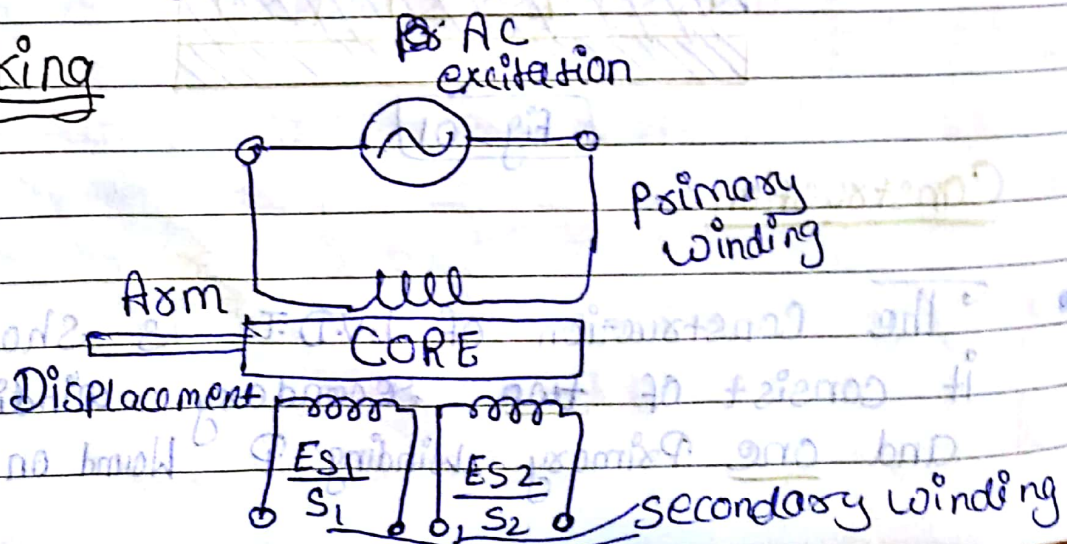 king
AC
excitation
Primary
winding
Arm
CORE
Displacement
ES1
S1
ES2
S2
secondary winding